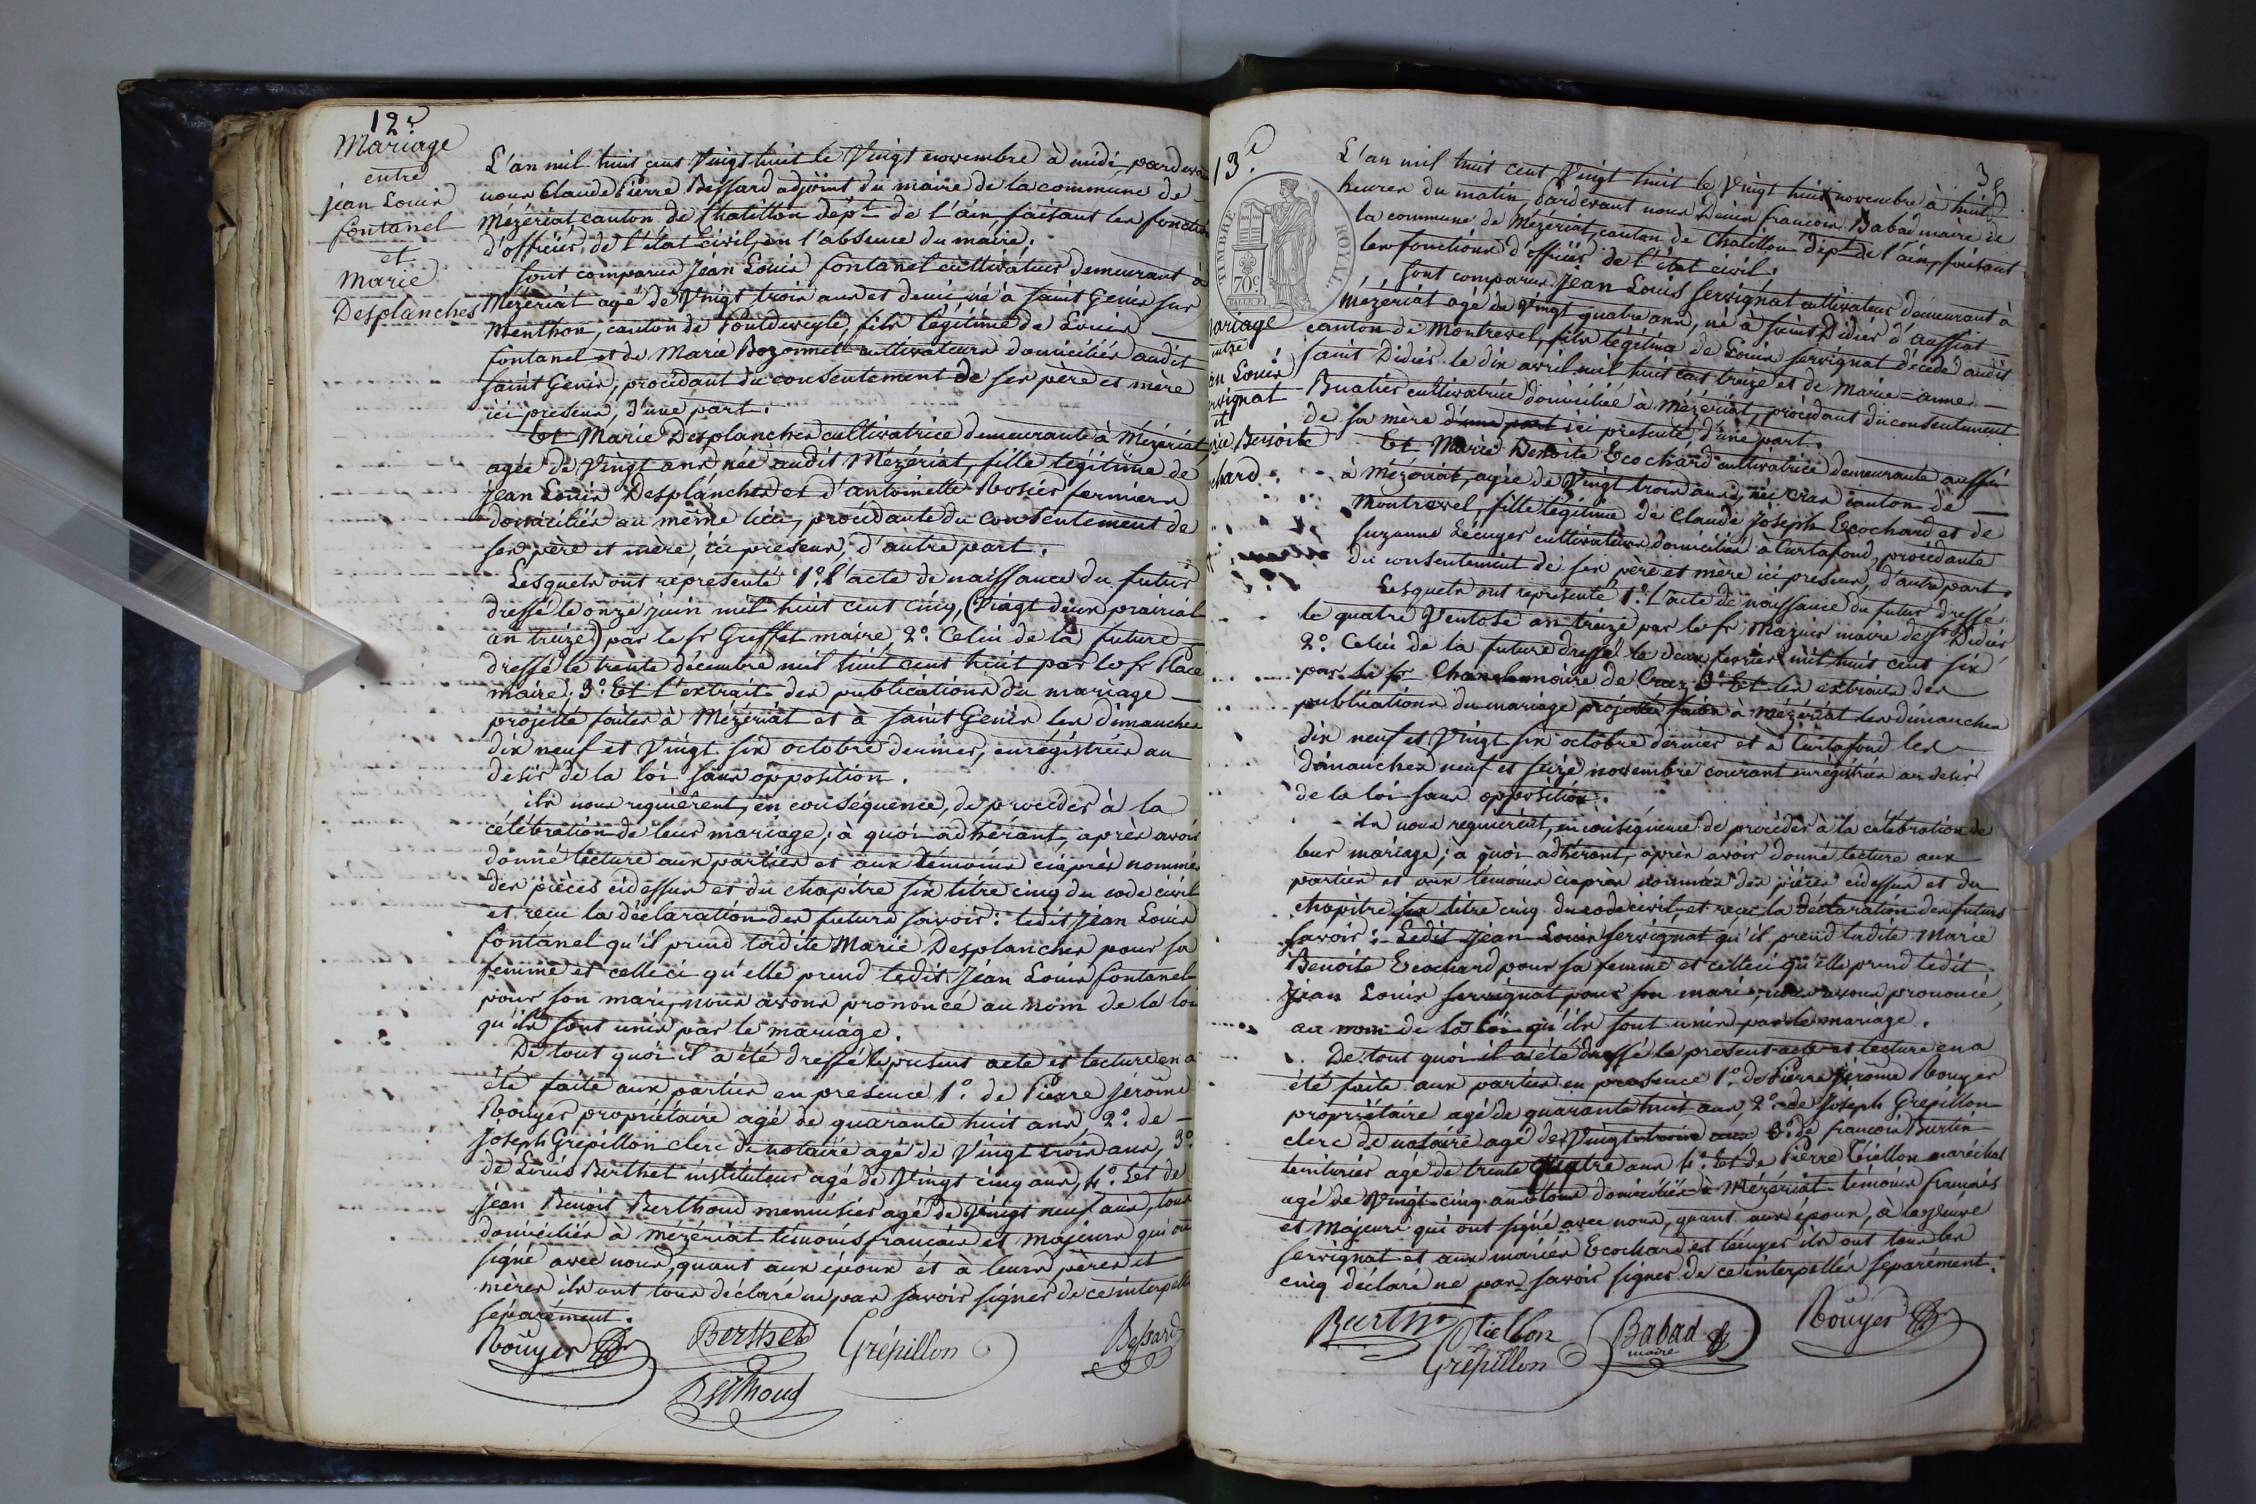 12e
Mariage
entre
jean Louis
fontanel
et
Marie
Desplanches
L'an mil huit cent Vingt huit le Vingt novembre à midi, pardevant
nous Claude Pierre Bessard adjoint du maire de la commune de
Mézériat canton de Chatillon dépt de l'ain faisant les fonctions
d'officier de l'état civil en l'absence du maire;
sont comparus Jean Louis fontanel cultivateur demeurant à
Mézériat agé de Vingt trois ans et demi né à saint Genis sur
Menthon, canton de Pontdeveyle, fils légitime de Louis
fontanel et de Marie Bozonnet cultivateurs domiciliés audit
saint Genis, procédant du consentement de ses père et mère
ici présens, d'une part.
Et Marie Desplanches cultivatrice demeurante à Mézériat
agée de Vingt ans née audit Mézériat, fille légitime de
jean Louis Desplanches et d'antoinette Rosier fermiers
domiciliés au même lieu, procédante du consentement de
ses père et mère, ici présens, d'autre part.
Lesquels ont représenté 1º. l'acte de naissance du futur
dressé le onze juin mil huit cent cinq, (Vingt deux prairial
an treize) par le sr Greffet maire, 2º. Celui de la future
dressé le trente décembre mil huit cent huit par le sr Place
maire; 3º. Et l'extrait des publications du mariage
projetté faites à Mézériat et à saint Genis les dimanches
dix neuf et Vingt six octobre dernier, enrégistrées au
desir de la loi sans opposition.
ils nous requièrent, en conséquence, de procéder à la
célébration de leur mariage; à quoi adhérant, après avoir
donné lecture aux parties et aux témoins ciaprès nommés
des pièces cidessus et du chapitre six titre cinq du code civil
et reçu la déclaration des futurs savoir: ledit Jean Louis
fontanel qu'il prend ladite Marie Desplanches pour sa
femme et celleci qu'elle prend ledit Jean Louis fontanel
pour son mari, nous avons prononcé au nom de la loi
qu'ils sont unis par le mariage.
De tout quoi il a été dressé le présent acte et lecture en a
été faite aux parties en présence 1º. de Pierre Jérôme
Rouyer propriétaire agé de quarante huit ans, 2º. de
Joseph Grépillon clerc de notaire agé de Vingt trois ans, 3º.
de Louis Berthet instituteur agé de Vingt cinq ans, 4º. Et de
Jean Benoit Berthoud menuisier agé de Vingt neuf ans, tous
domiciliés à mézériat témoins français et majeurs qui ont
signé avec nous, quant aux époux et à leurs pères et
mères ils ont tous déclaré ne pas savoir signer de ce interpellés
séparément.
Rouyer Berthet Grépillon Bessard
Berthoud
38
13e
TIMBRE ROYAL
70c
Mariage
entre
Jean Louis
servignat
et
Marie Benoite
Ecochard
L'an mil huit cent Vingt huit le Vingt huit novembre à huit
heures du matin, Pardevant nous Denis françois Babad maire de
la commune de Mézériat, canton de Chatillon dépt de l'ain, faisant
les fonctions d'officier de l'état civil;
sont comparus Jean Louis servignat cultivateur demeurant à
Mézériat agé de Vingt quatre ans, né à saint Didier d'aussiat
canton de Montrevel, fils légitime de Louis servignat décédé audit
saint Didier le dix avril mil huit cent treize et de Marie-anne
Buatier cultivatrice domiciliée à Mézériat, procédant du consentement
de sa mère d'une part ici présente, d'une part.
Et Marie Benoite Ecochard cultivatrice demeurante aussi
à Mézériat, agée de Vingt trois ans, née Cras canton de
Montrevel, fille légitime de Claude Joseph Ecochard et de
suzanne Lécuyer cultivateurs domiciliés à Curtafond, procédante
du consentement de ses père et mère ici présens, d'autre part.
Lesquels ont représenté 1º. L'acte de naissance du futur dressé
le quatre Ventose an treize par le sr Mazuir maire de st Didier
2º. Celui de la future dressé le deux fevrier mil huit cent six
par le sr maire de Cras, 3º. Et les extraits des
publications du mariage projetté faites à Mézériat les dimanches
dix neuf et Vingt six octobre dernier et à Curtafond les
dimanches neuf et seize novembre courant enrégistrées au desir
de la loi sans opposition.
ils nous requièrent, en conséquence de procéder à la célébration de
leur mariage; à quoi adhérant, après avoir donné lecture aux
parties et aux témoins ciaprès nommés des pièces cidessus et du
chapitre six titre cinq du code civil, et reçu la déclaration des futurs
savoir: Ledit Jean Louis servignat qu'il prend ladite Marie
Benoite Ecochard pour sa femme et celleci qu'elle prend ledit
Jean Louis servignat pour son mari, nous avons prononcé,
au nom de la loi qu'ils sont unis par le mariage.
De tout quoi il a été dressé le présent acte et lecture en a
été faite aux parties en présence 1º. de Pierre Jérôme Rouyer
propriétaire agé de quarante huit ans, 2º. de Joseph Grépillon
clerc de notaire agé de Vingt trois ans 3º. de françois Burtin
teinturier agé de trente quatre ans 4º. Et de Pierre Tiellon maréchal
agé de Vingt cinq ans tous domiciliés à Mézériat témoins français
et Majeurs qui ont signé avec nous, quant aux époux, à la veuve
servignat et aux mariés Ecochard et Lécuyer ils ont tous les
cinq déclaré ne pas savoir signer de ce interpellés séparément.
Burtin Tiellon Babad Rouyer
maire
Grépillon